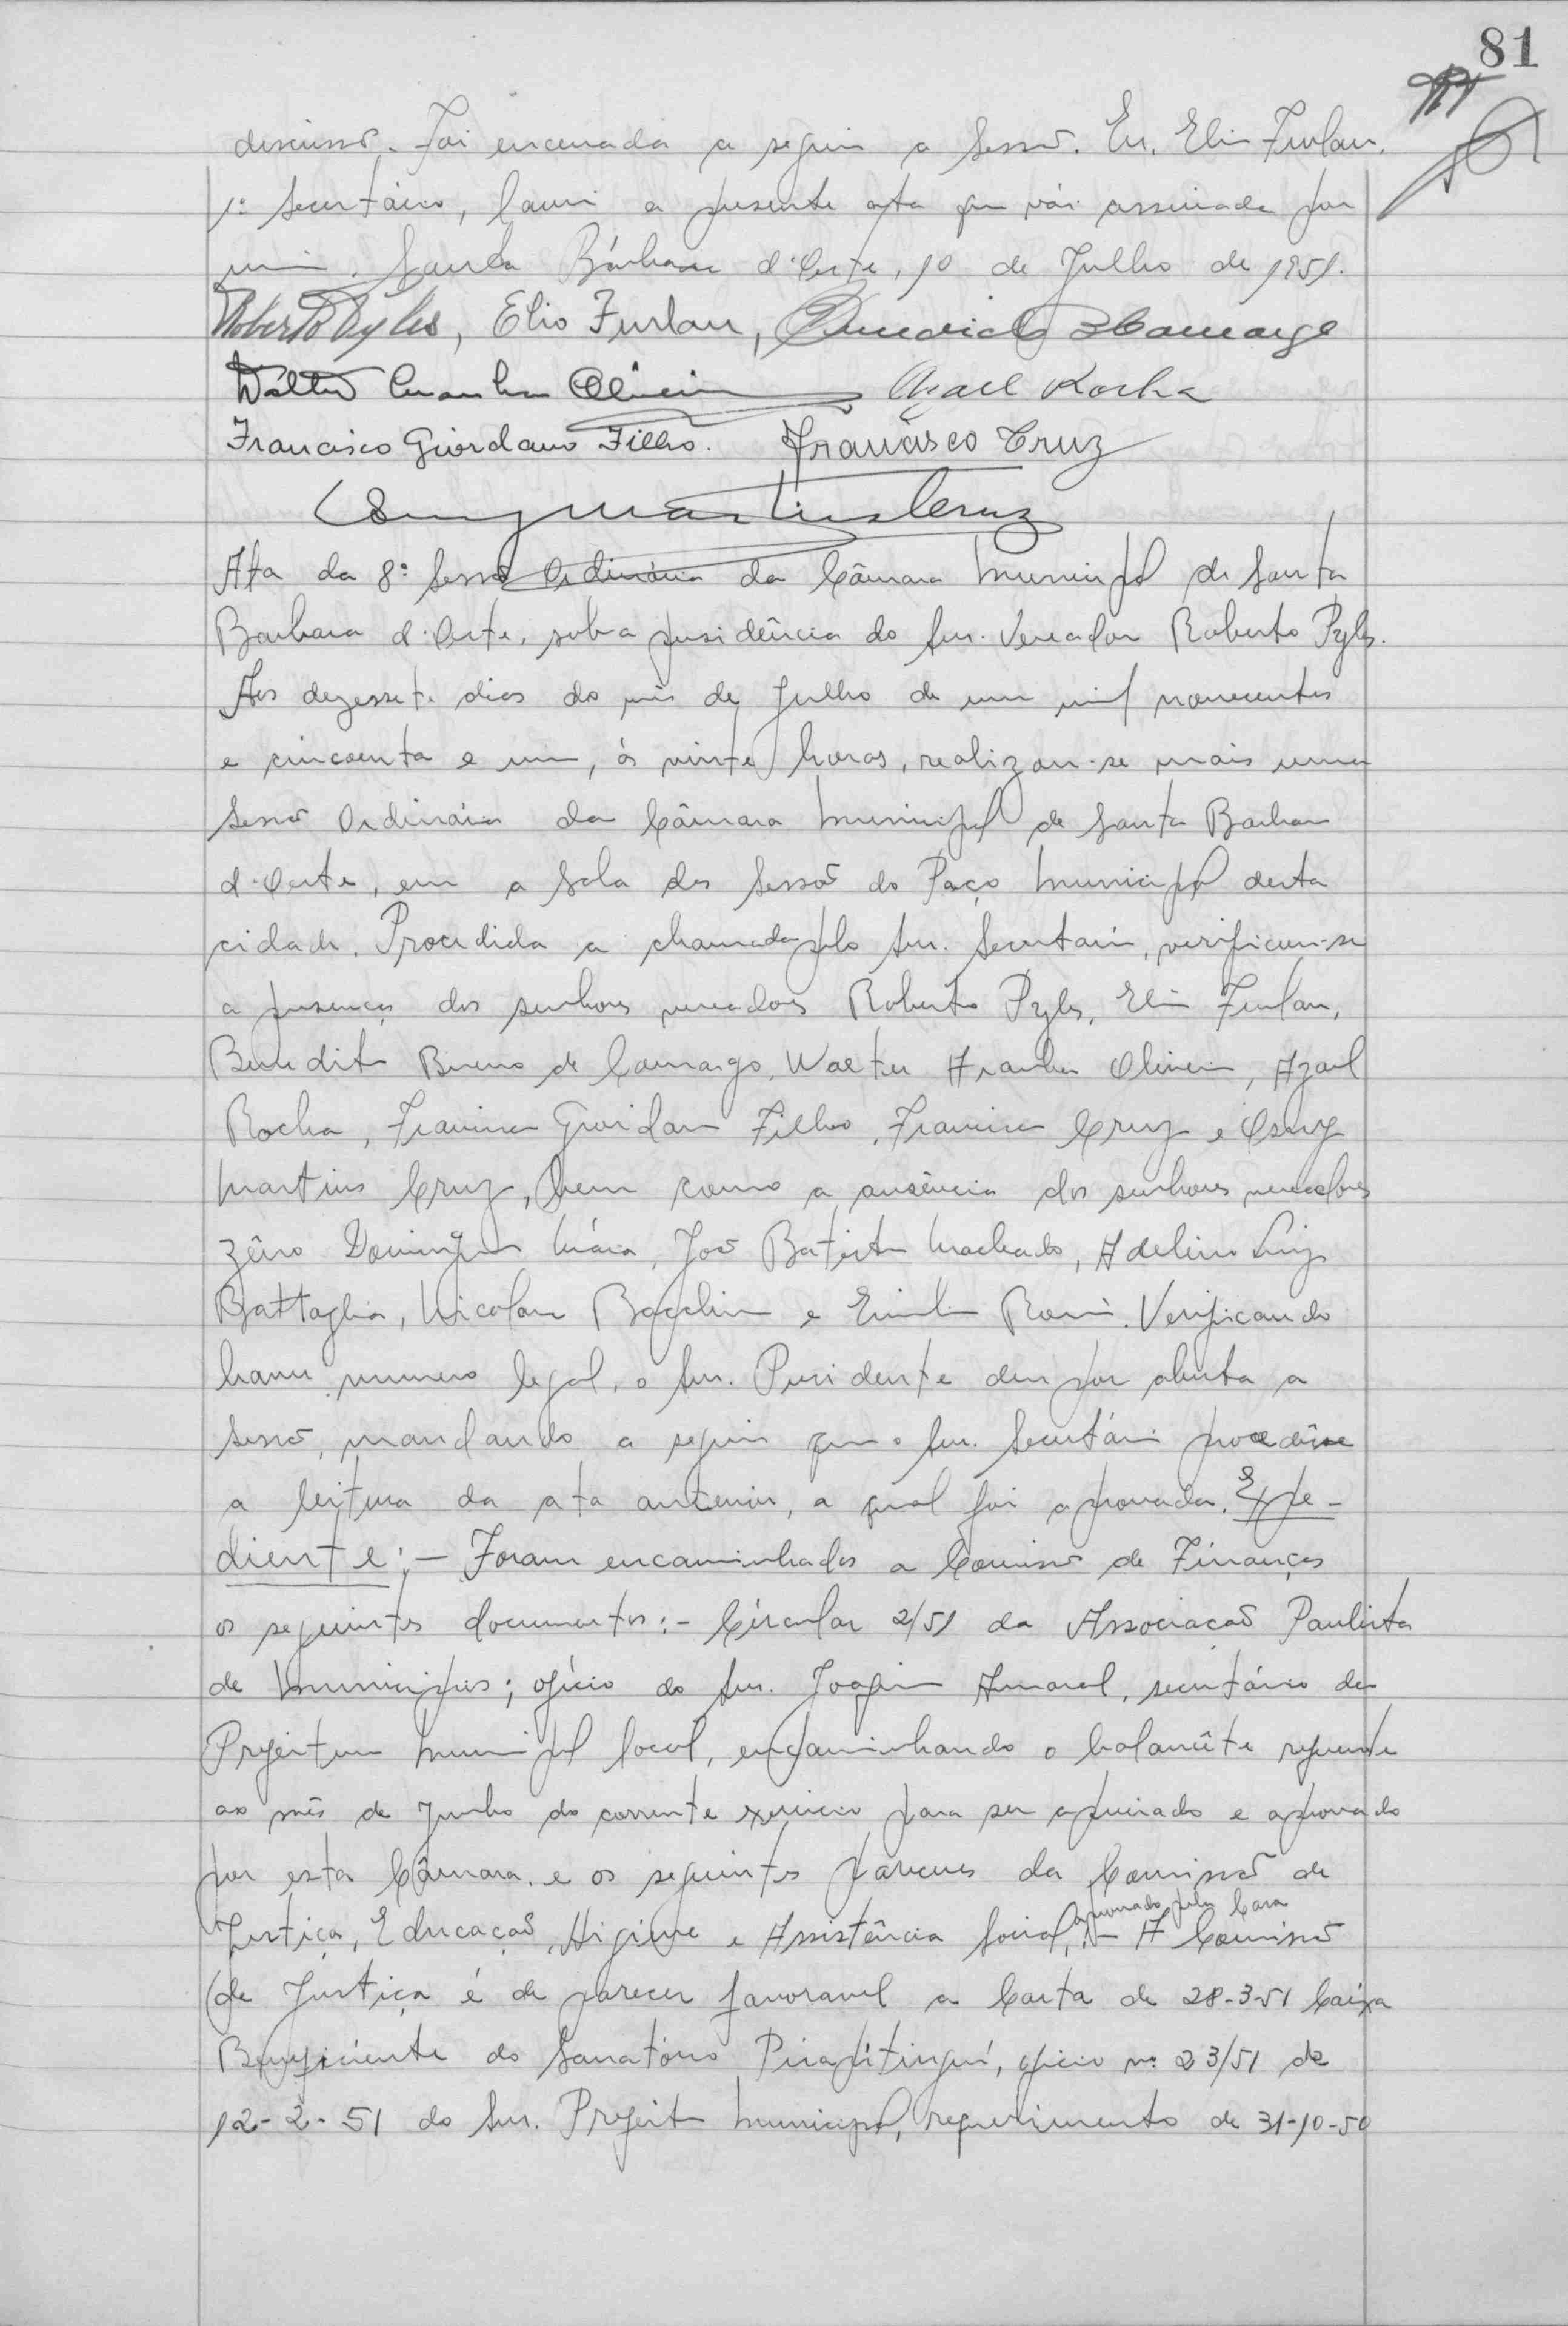 81
discussão. Foi encerrada a seguir a Sessão. Eu, Elio Furlan,
1º Secretário, lavrei a presente ata que vai assinada por
mim. Santa Bárbara d'Oeste, 10 de Julho de 1951.
Roberto Pyles, Elio Furlan, Benedicto B Camargo
Walter Aranha Oliveira Azael Rocha
Francisco Giordano Filho. Francisco Cruz
Osny Martins Cruz
Ata da 8ª Sessão Ordinária da Câmara Municipal de Santa
Barbara d'Oeste, sob a presidência do Snr. Vereador Roberto Pyles.
Aos dezessete dias do mês de Julho de um mil novecentos
e cincoenta e um, ás vinte horas, realizou-se mais uma
Sessão Ordinária da Câmara Municipal de Santa Barbara
d'Oeste, em a Sala das Sessões do Paço Municipal desta
cidade. Procedida a chamada pelo Snr. Secretario, verificou-se
a presença dos senhores vereadores Roberto Pyles, Elio Furlan,
Benedito Bueno de Camargo, Walter Aranha Oliveira, Azael
Rocha, Francisco Giordano Filho, Francisco Cruz e Osny
Martins Cruz, bem como a ausência dos senhores vereadores
Zêno Domingues Máia, João Batista Machado, Adelino Luiz
Battaglia, Nicolau Bacchin e Emilio Romi. Verificando
haver numero legal, o Snr. Presidente deu por aberta a
Sessão, mandando a seguir que o Snr. Secretário procedêsse
a leitura da ata anterior, a qual foi aprovada. Expe-
diente:- Foram encaminhados a Comissão de Finanças
os seguintes documentos:- Circular 2/51 da Associação Paulista
de Municipios; ofício do Snr. Joaquim Amaral, secretário da
Prefeitura Municipal local, encaminhando o balancête referente
ao mês de Junho do corrente exercicio para ser apreciado e aprovado
por esta Câmara. e os seguintes pareceres da Comissão de
Justiça, Educação, Higiene e Assistência Social, aprovado pela Casa :- A Comissão
de Justiça é de parecer favoravel a Carta de 28-3-51 Caixa
Beneficiente do Sanatório Pirapitinguí, oficio nº 23/51 de
12-2-51 do Snr. Prefeito Municipal, requerimento de 31-10-50